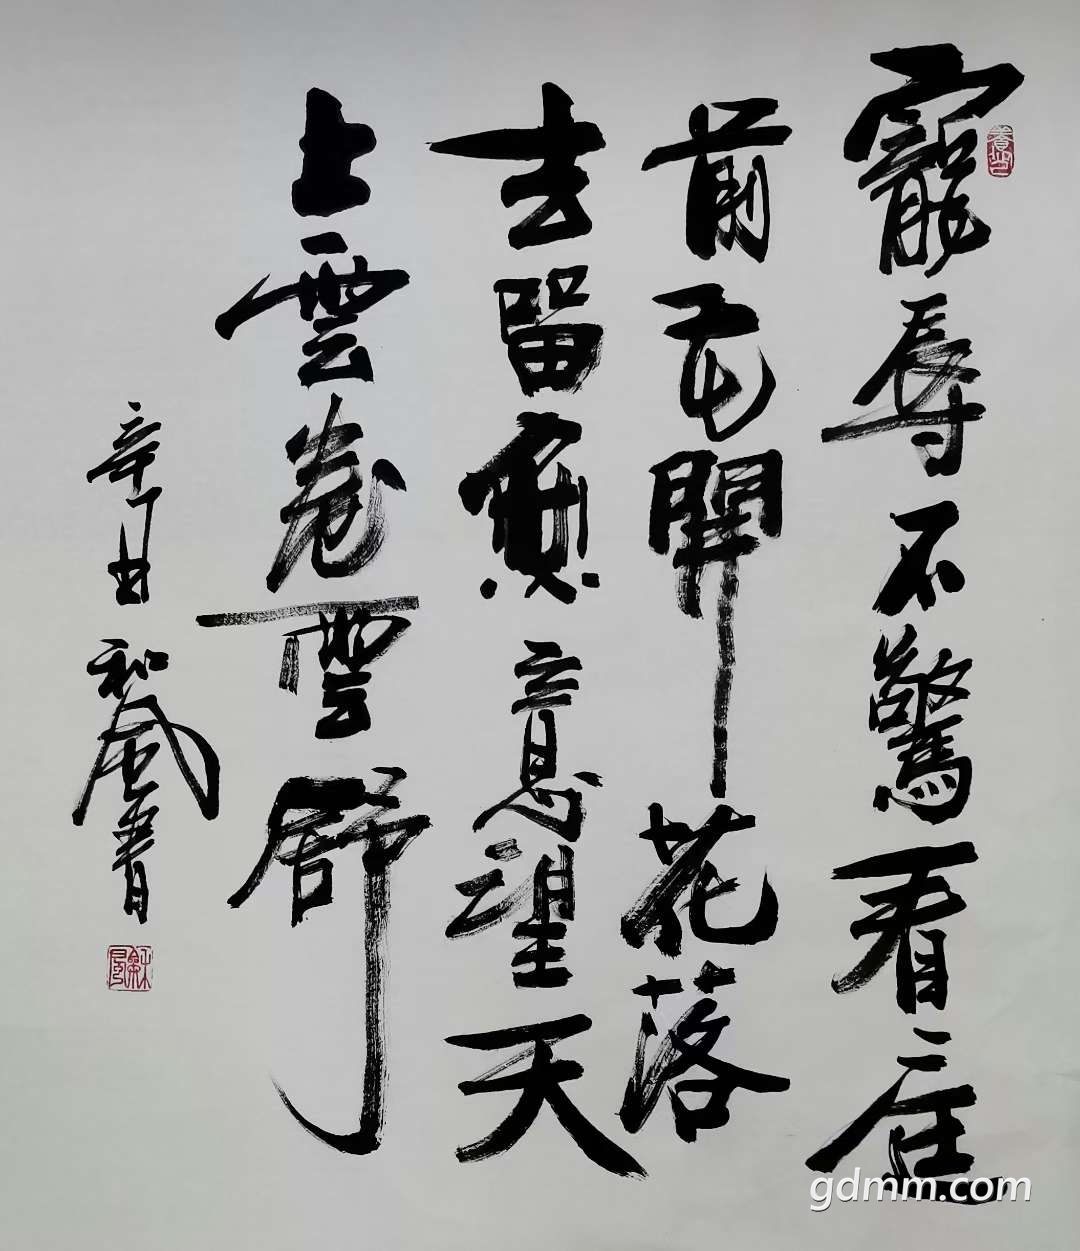 寵辱不驚看庭
前花開花落
去留無意望天
上雲卷雲舒
辛丑 和風書
gdmm.com